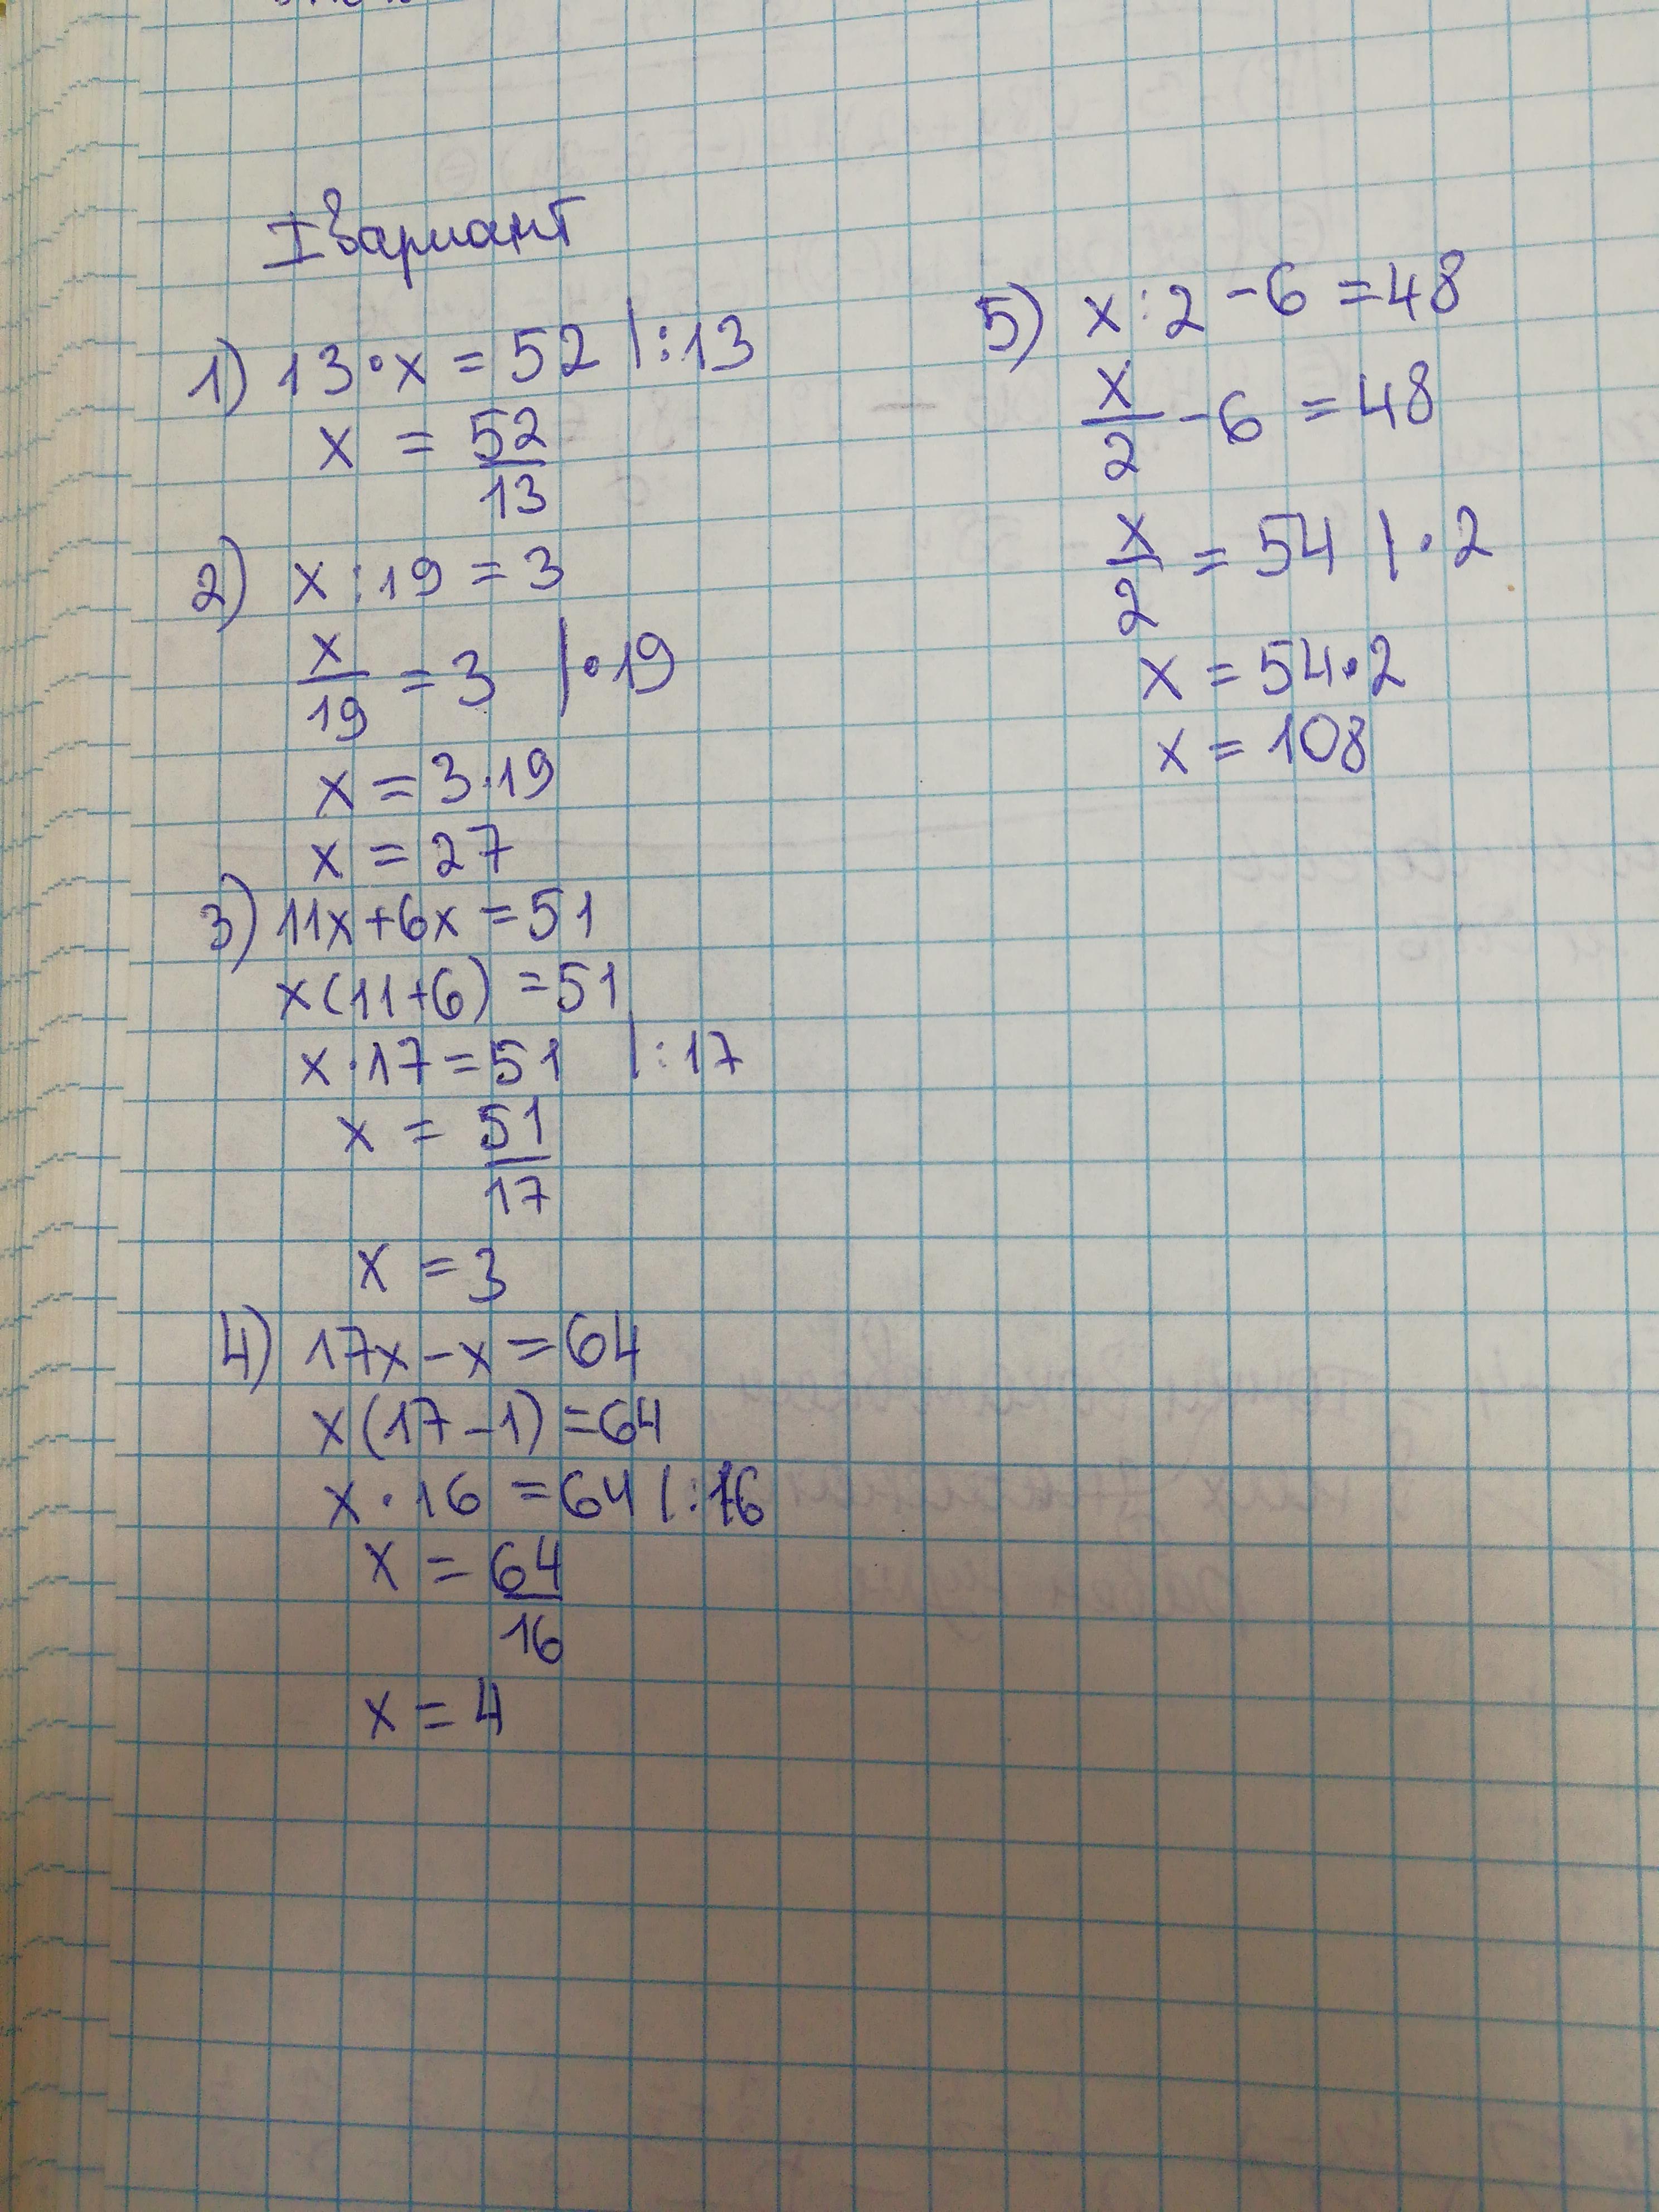 I Вариант
1) 13·x = 52 |:13
x = 52/13
2) x:19 = 3
x/19 = 3 |·19
x = 3·19
x = 27
3) 11x+6x = 51
x(11+6) = 51
x·17 = 51 |:17
x = 51/17
x = 3
4) 17x-x = 64
x(17-1) = 64
x·16 = 64 |:16
x = 64/16
x = 4
5) x:2 -6 = 48
x/2 -6 = 48
x/2 = 54 |·2
x = 54·2
x = 108